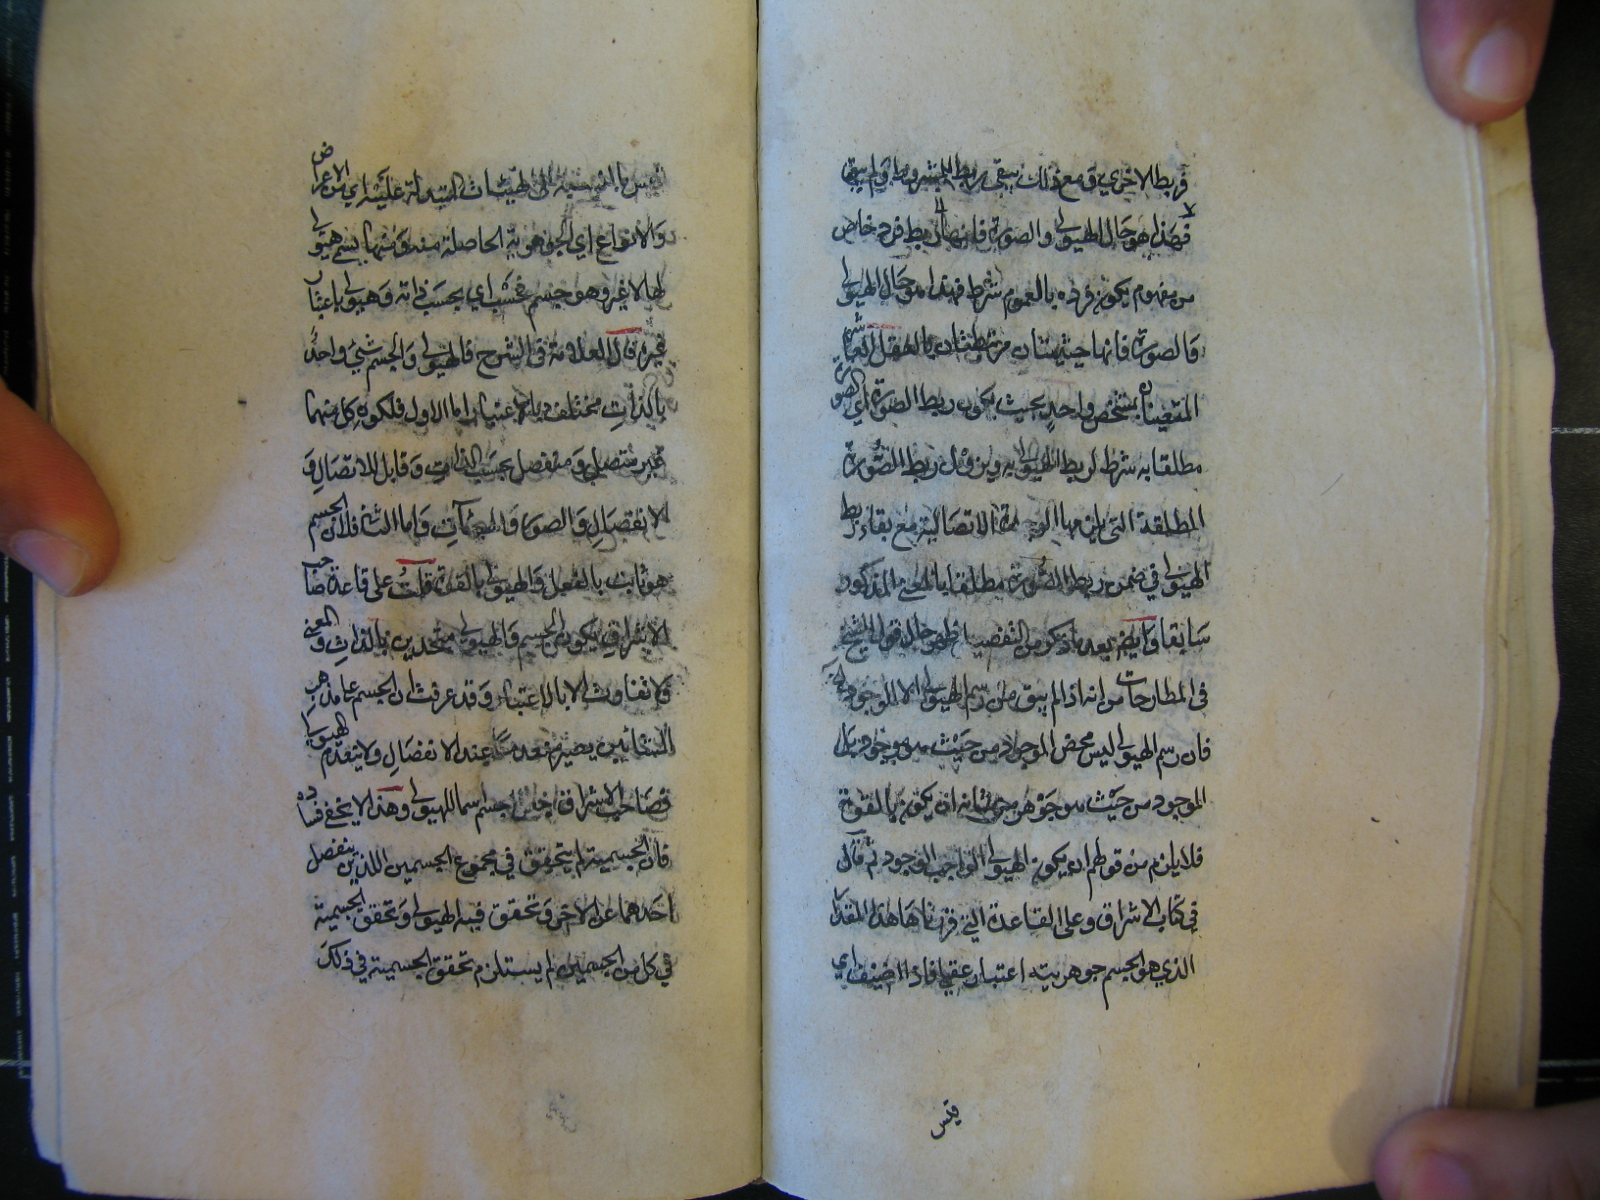 فربط الاخرى ومع ذلك يبقى ربط المشروط اولم يبق
فهذا هو حال الهيولى والصورة فانهما ربط فرد خاص
من مفهوم يكون فرده بالعموم شرط فهذا هو حال الهيولى
والصورة فانها حيثيتان مرتبطتان بالعقل العاشر
المتعيناه بشخص واحد بحيث يكون ربط الصورة اي الصورة
مطلقا به شرط لربط الهيولى به ومن قبل ربط الصورة
المطلقة التي يلزمها الوحدة الاتصالية مع بقاء ربط
الهيولى في ضمن ربط الصورة مطلقا بالمعنى المذكور
سابقا وايضا بعد ما ذكر من التفصيل ظهر حال قول الشيخ
في المطارحات من انه اذا لم يبق من رسم الهيولى الا الموجودية
فان رسم الهيولى ليس محض الموجود من حيث هو موجود بل
الموجود من حيث هو جوهر من شانه ان يكون بالقوة
فلا يلزم من قولهم ان يكون الهيولى الواجب الوجود ثم قال
في كتاب الاشراق وعلى القاعدة التي قررناها هذا المقدار
الذي هو الجسم جوهريته اعتبار عقلي فاذا اضيف اي
قيس
قيس بالنسبة الى الهيئات المتبدلة عليه اي من الاعراض
والانواع اي الجوهرية الحاصلة منه ومنها يسمى هيولى
لها لا غير وهو جسم فحسب اي بحسب ذاته وهيولى باعتبار
غيره قال العلامة في الشرح فالهيولى والجسم شيئ واحد
بالذات مختلف بالاعتبار اما الاول فلكون كل منهما
غير متصل ومنفصل بحسب الذات وقابل للاتصال و
الانفصال والصور والهيئات واما الثاني فلان الجسم
هو ثابت بالفعل والهيولى بالقوة قلت على قاعدة صاحب
الاشراق يكون الجسم والهيولى متحدين بالذات والمعنى
ولا تفاوت الا بالاعتبار وقد عرفت ان الجسم على مذهب
المشائين يصير منعدما عند الانفصال ولا ينعدم الهيولى
فصاحب الاشراق اخذ الجسم اسما للهيولى وهذا لا يخفى فساده
فان الجسمية لم يتحقق في مجموع الجسمين اللذين ينفصل
احدهما عن الاخر وتحقق فيه الهيولى وتحقق الجسمية
في كل من الجسمين لم يستلزم تحقق الجسمية في ذلك